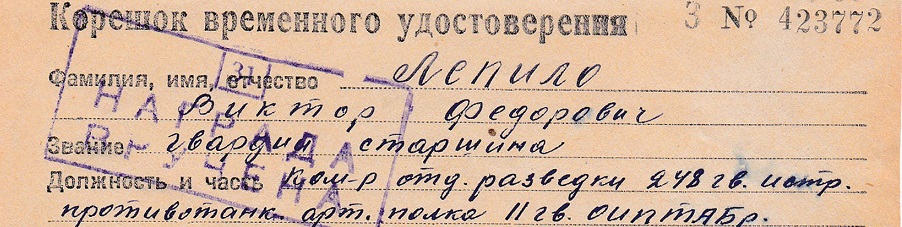 Корешок временного удостоверения З № 423772
Фамилия, имя, отчество Лепило
Виктор Федорович
Звание гвардии старшина
Должность и часть Ком-р отд. разведки 248 гв. истр.
противотанк. арт. полка 11 гв. ОИПТАБр.
31
НАГРАДА
ВРУЧЕНА